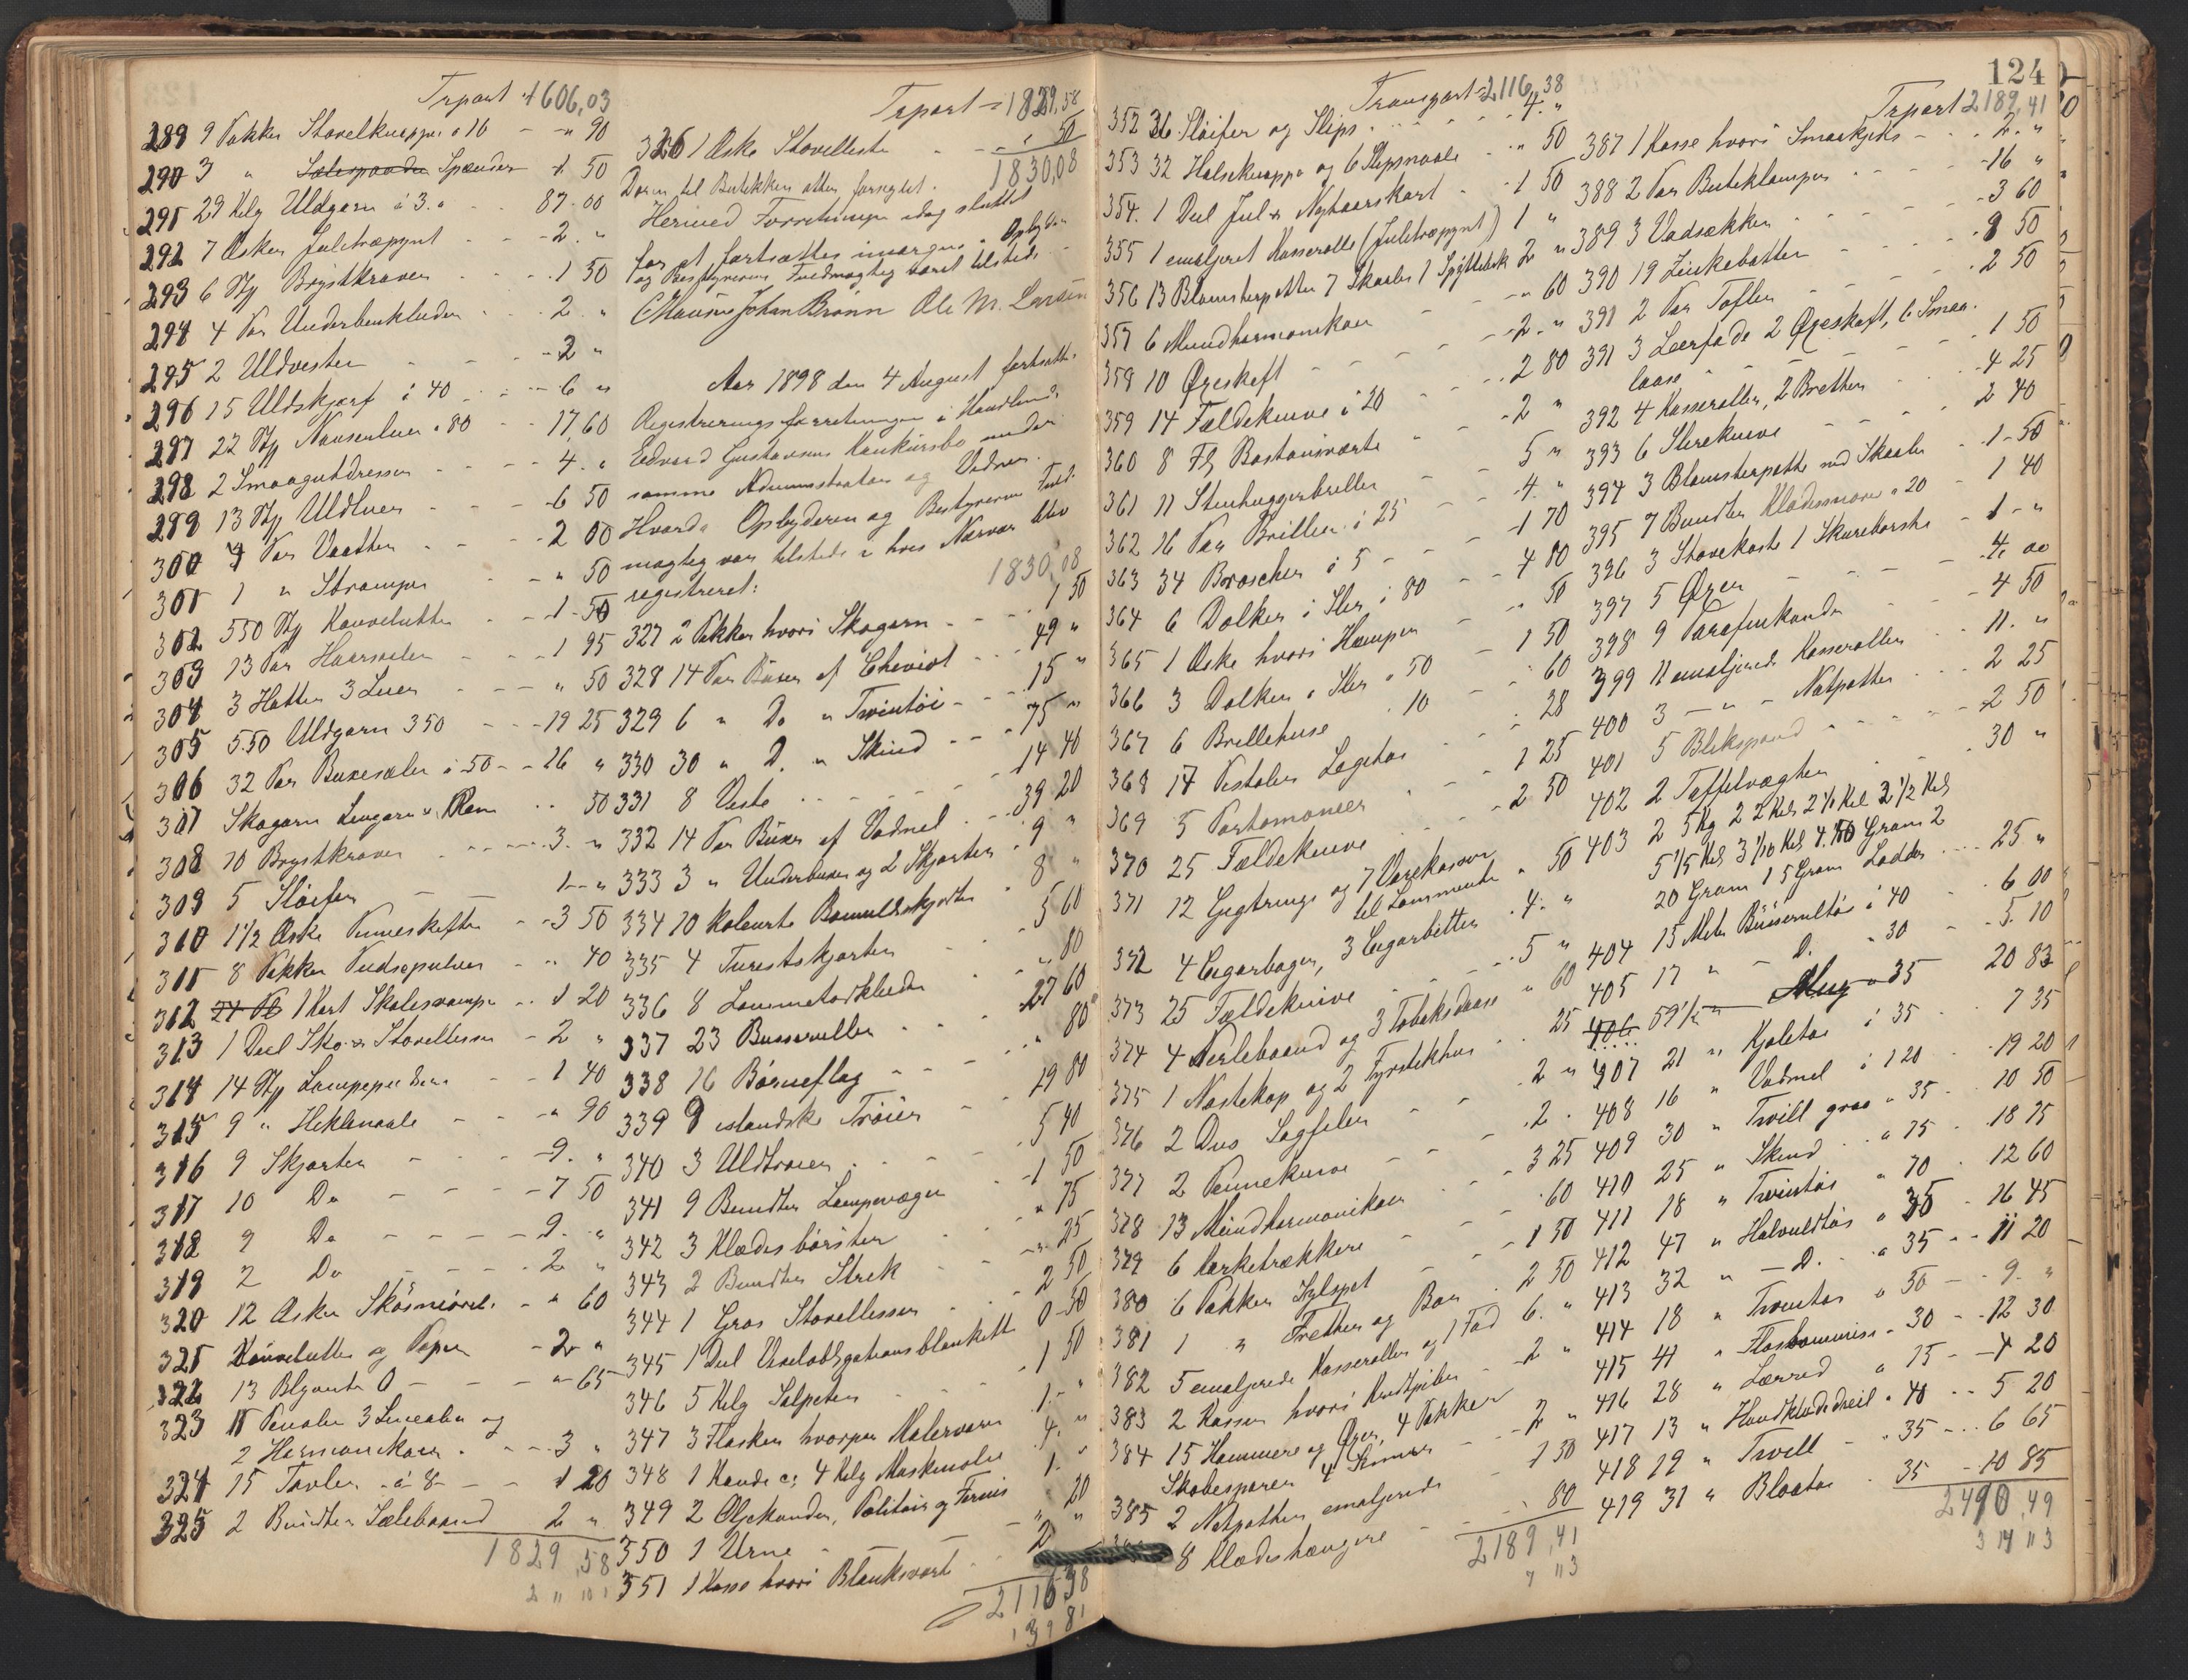 Trport 1606,03
289 9 Pakker Støvelknapper a 16 - - „ 90
290 3 „ Spænder - 1 50
291 29 Kilg Uldgarn á 3. „ - 87.00
292 7 Æsker Juletræpynt - - - 2. „
293 6 Stk Brystkraver - - - 1 50
294 4 Par Underbenklæder - - 2. „
295 2 Uldvester - - - 2 „
296 15 Uldskjærf á 40 - - - 6 „
297 22 Stk Nansenluer a 80 - - 17,60
298 2 Smaagutdresser - - - 4. „
299 13 Stk Uldluer - - - 6 50
300 4 Par Vaatter - - - 2 00
301 1 „ Strømper - - - „ 50
302 550 Stk Konvolutter - - 1.50
303 13 Par Hæsæler - - - 1 95
304 3 Hatter 3 Luer - - - „ 50
305 5.50 Uldgarn 350 - - - 19 25
306 32 Par Buxesæler á 50 - - 16 „
307 Skogarn Lingarn - - 50
308 10 Brystkraver - - - 3. „
309 5 Sløifer - - 1 - „
310 1 1/2 Æske Penneskafter - - 3 50
311 8 Pakker Pudsepulver - - „ 40
312 1 Kart Skolesvampe - - 1 20
313 1 Deel Sko & Støvellisser - 2 „
314 14 Stk Lampepudsere - - 1 40
315 9 „ Heklenaale - - - „ 90
316 9 Skjorter - - - 9. „
317 10 Do - - - 7 50
318 9 Do - - - - 9. „
319 2 Do - - - - 2 „
320 12 Æsker Skosmørelse - „ 60
321 Konvolutter og Papir - 2 „
322 13 Blyanter O - - - „ 65
323 11 Penaler 3 Linealer og
2 Harmonikaer - - - 3 „
324 15 Tavler á 8 - - - 1 20
325 2 Bundter Sælebaand 2 „
1829,58
Trport = 1829,58
326 1 Æske Støvelliste - - - 50
1830,08
Døren til Butikken atter forseglet.
Hermed Forretningen idag sluttet
for at fortsættes imorgen. Opbyder
og Bestyrerens Fuldmægtig været tilstede.
Johan Brønn Ole M. Larsen
Aar 1898 den 4 August fortsattes
Registreringsforretningen i Handlende
Edvard Gustavsens Konkursbo under
samme Administration og Vidner.
Hvorda Opbyderen og Bestyrerens Fuld-
mægtig var tilstede i hvis Nærvær blev
registreret: 1830,08
327 2 Pakker hvori Skogarn - - - 1 50
328 14 Par Buxer af Cheviot - - - 49 „
329 6 „ Do „ Tvintøi - - 15 „
330 30 „ D. „ Skind - - - 75 „
331 8 Veste - - - - 14 40
332 14 Par Buxer af Vadmel - - 39 20
333 3 „ Underbuxer og 2 Skjorter - 9 „
334 10 kolørte Bomuldsskjorter - 8 „
335 4 Turistskjorter - - 5 60
336 8 Lommetørklæder - - „ 80
337 23 Busseruller - - - 27 60
338 16 Børneflag - - - „ 80
339 9 islandske Trøier - - 19 80
340 3 Uldtrøier - - - 5 40
341 9 Bundter Lampevæger - - 1 50
342 3 Klædesbørster - - „ 75
343 2 Bundter Strik - - - 25
344 1 Gros Støvellisser - - - 2 50
345 1 Deel Vexelobligationsblanketter 0-50
346 5 Kilg Salpeter - - - 1 50
347 3 Flasker hvorpaa Malervarer 1. - „
348 1 Kande ca 4 Kilg Maskinolie 4. „
349 2 Oljekander, Politour og Fernis 1. „
350 1 Urne - - - - „ 20
351 1 Kasse hvori Blanksværte - - 2 „
2116 38
124
Transport = 2116,38
352 36 Sløifer og Slips - - - - 4. „
353 32 Halsknapper og 6 Slipsnaale - - „ 50
354. 1 Deel Jul & Nytaarskort - - 1 50
355 1 emaljeret Kasserolle (Juletræpynt) 1 „
356 13 Blomsterpotter 7 Skaaler 1 Spyttebak 2 „
357 6 Mundharmonikaer - - „ 60
358 10 Øxeskaft - - - - 2. „
359 14 Foldeknive á 20 - - - 2 80
360 8 Fl Bostonsværte - - - 2 „
361 11 Stenhuggerbriller - - 5 „
362 16 Par Briller á 25 - - - 4. „
363 34 Broscher á 5 - - - 1 70
364 6 Dolker i Slir á 80 - - 4 80
365 1 Æske hvori Hemper - - „ 50
366 3 Dolker i Slir a 50 - - 1 50
367 6 Brillehuse 10 - - 60
368 14 Pistoler Legetøi - - - 28
369 5 Portemonæer - - - 1 25
370 25 Foldeknive - - - 2 50
371 12 Gigtringe og 7 Varekasser
til Lommeuhr „ 50
372 4 Cigarbøger, 3 Cigarbitter - 4. „
373 25 Foldeknive - - - - 5 „
374 4 Perlebaand og 3 Tobaksdaase „ 60
375 1 Næstekop og 2 Fyrstikhus - 25
376 2 Dus Sagfiler - - - 2 „
377 2 Penneknive - - - 2 .
378 13 Mundharmonikaer - - - 3 25
379 6 Korketrækkere - - - 60
380 6 Pakker Sylspet - - - 1 50
381 1 „ Fretter og Bor - 2 50
382 5 emaljerede Kasseroller og 1 Fad 6. „
383 2 Kasser hvori Kridtpiber - - 2 „
384 15 Hammere og Øxer, 4 Pakker
Skobesparere 4 - - 2 „
385 2 Natpotter emaljerede - 1 50
8 Klædeshængere - - - 80
2189,41
Trport 2189,41
387 1 Kasse hvori Smaakjeks - - - 2. „
388 2 Par Butiklamper - - - 16 „
389 3 Vadsækker - - - - 3 60
390 19 Zinkebøtter - - - 8 50
391 2 Par Tøfler - - - - 2 50
391 3 Leerfade 2 Øxeskaft, 6 Smaa-
laase - - - - 1 50
392 4 Kasseroller, 2 Bretter - - 4 25
393 6 Slireknive - - - 2 40
394 3 Blomsterpotter med Skaaler - - 1-50
395 7 Bundter Klædesnorer a 20 - 1 40
396 3 Stovekoste 1 Skurebørste - 1 - „
397 5 Øxer - - - - 4. 00
398 9 Parafinkander - - - 4 50
399 11 emaljerede Kasseroller - - 11. „
400 3 — „ — Natpotter - - - 2 25
401 5 Blikspand - - - - 2 50
402 2 Taffelvægter - - - 30 „
403 2 5 Kg 2 2 Kil 2 1/1 Kil 2 1/2 Kil
5 1/5 Kil 3 1/10 Kil 4. 50 Gram 2
20 Gram 1 5 Gram Lodder - - - 25 „
404 15 Meter Busserultøi á 40 - - 6 00
405 17 „ - D. „ 30 - - 5. 10
406 59 1/2 „ a 35 20 83
407 21 „ Kjoletøi á 35 - - 7 35
408 16 „ Vadmel á 120 - - 19 20
409 30 „ Tvill graa a 35 - 10 50
410 25 „ Skind - - a 75 - 18 75
411 18 „ Tvintøi „ 70 - 12 60
412 47 „ Halvuldtøi a 35 - 16 45
413 32 „ - D. - a 35 - - 11 20
414 18 „ Tvintøi a 50 - - 9. „
415 41 „ a 30 - - 12 30
416 28 „ Lærred a 15 - - 4 20
417 13 „ Haandklædedreil a 40 - - 5 20
418 19 „ Tvill - a 35 - - - 6 65
419 31 „ Blaatøi - 35 - - 10 85
2490,49